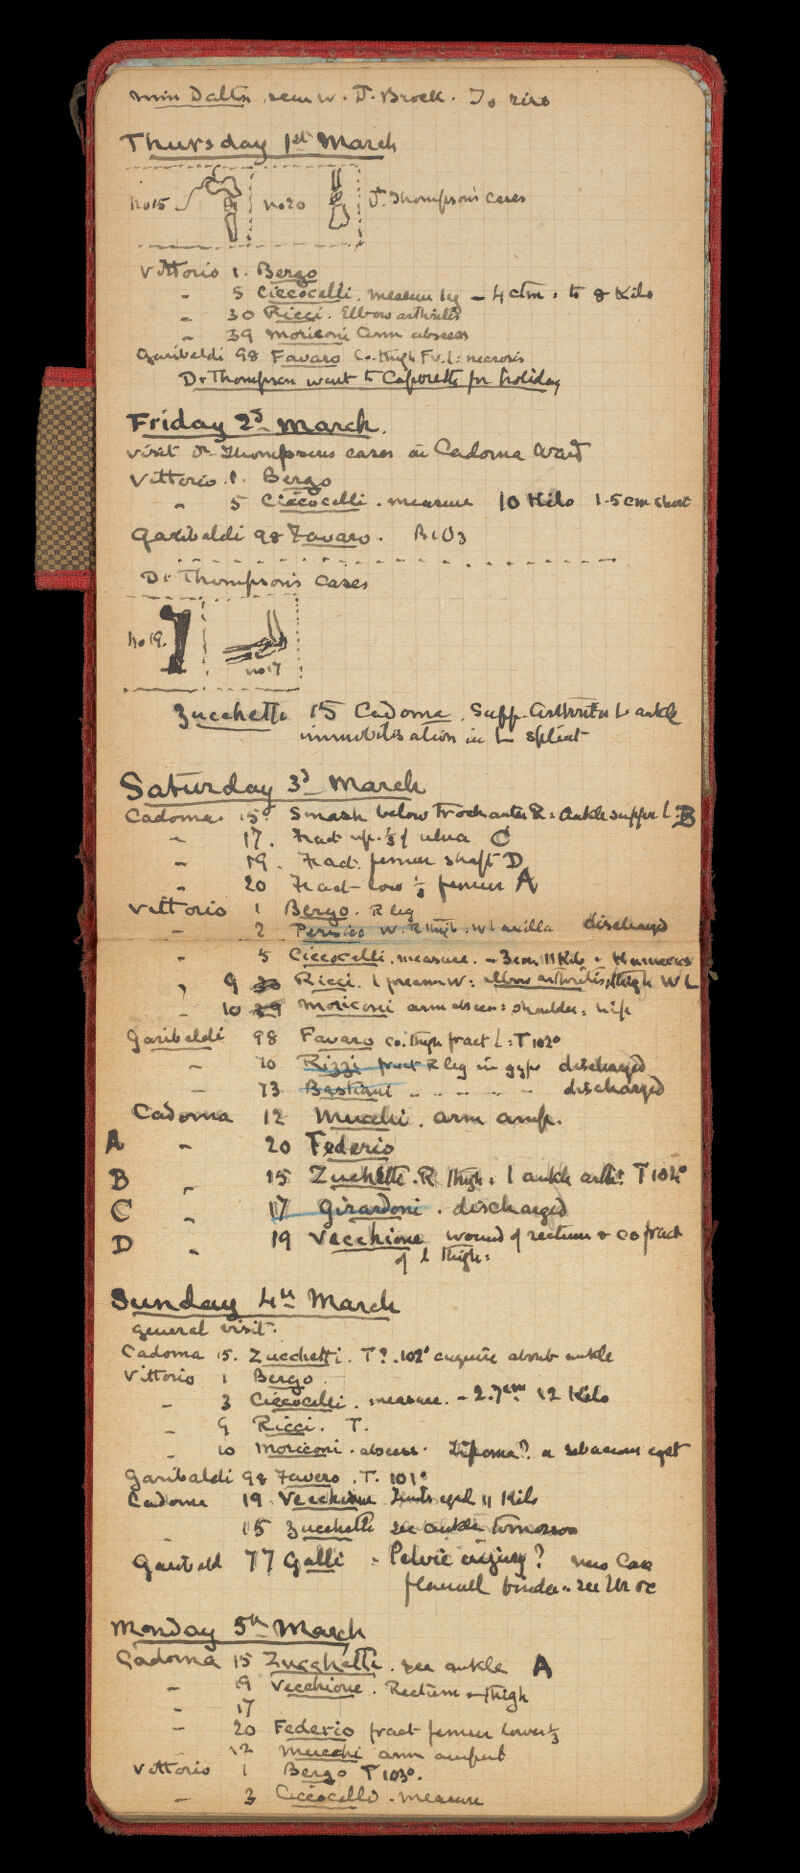 Miss Dalton seen w. J. Brock. To
Thursday 1st March
No 15 no 20 Dr. Thompson's cases
Vittorio 1. Bergo
" 5 Ciccocelli. measure leg – 4 ctm. to 8 Kilo
" 30 Ricci. Elbow arthritis
" 39 Moriconi Arm abscess
Garibaldi 98 Favaro Co. thigh Fr. L: necrosis
Dr Thompson went to Caporetto for holiday
Friday 2d March.
visit Dr Thompsons cases in Cadorna Ward
Vittorio. 1. Bergo
" 5 Ciccocelli. measure 10 Kilo 1.5 cm short
Garibaldi 98 Favaro. B1O3
Dr Thompson's Cases
No 19. no 17
Zucchetti 15 Cadorna. Supp. Arthritis L ankle
immobilisation in L splint
Saturday 3d March
Cadorna. 15. Smash below Trochanter R: Ankle suppur L. B
" 17. Fract up. ⅓ of ulna C
" 19. Fract. femur shaft D
" 20 Fract – low ⅓ femur A
Vittorio 1 Bergo. R leg
" 2 Persico W. R thigh. W L axilla discharged
" 5 Ciccocelli. measure. – 3cm 11 Kilo + Humerus
" 9 30 Ricci. L W: elbow arthritis, thigh W L
" 10 39 Moriconi arm abscess: shoulder: hip
Garibaldi 98 Favaro co. thigh fract L: T 102°
" 70 Rizzi fract R leg in gyps discharged
" 73 Bastiani " " " " discharged
Cadorna 12 Mucchi. arm amp.
A " 20 Federio
B " 15 Zuchetti. R thigh. L ankle arth: T 104°
C " 17 Girardoni. discharged
D " 19 Vecchione wound of rectum & co fract
of L thigh:
Sunday 4th March
general visit.
Cadorna 15. Zucchetti. T?. 102° enquire about ankle
Vittorio 1 Bergo.
" 3 Ciccocelli. measure. – 2.7cm 12 Kilo
" 9 Ricci. T.
" 10 Moriconi. abscess. Lipoma? a sebaceous cyst
Garibaldi 98 Favero. T. 101°
Cadorna 19 Vecchione 11 Kilo
" 15 Zucchetti see ankle tomorrow
Garibald 77 Galli. Pelvic injury? new Case
flannell binder.
Monday 5th March
Cadorna 15 Zucchetti. see ankle A
" 19 Vecchione. Rectum – thigh
" 17
" 20 Federio fract femur lower ⅓
" 12 Mucchi arm amput
Vittorio 1 Bergo T 103°.
" 3 Ciccocello. measure